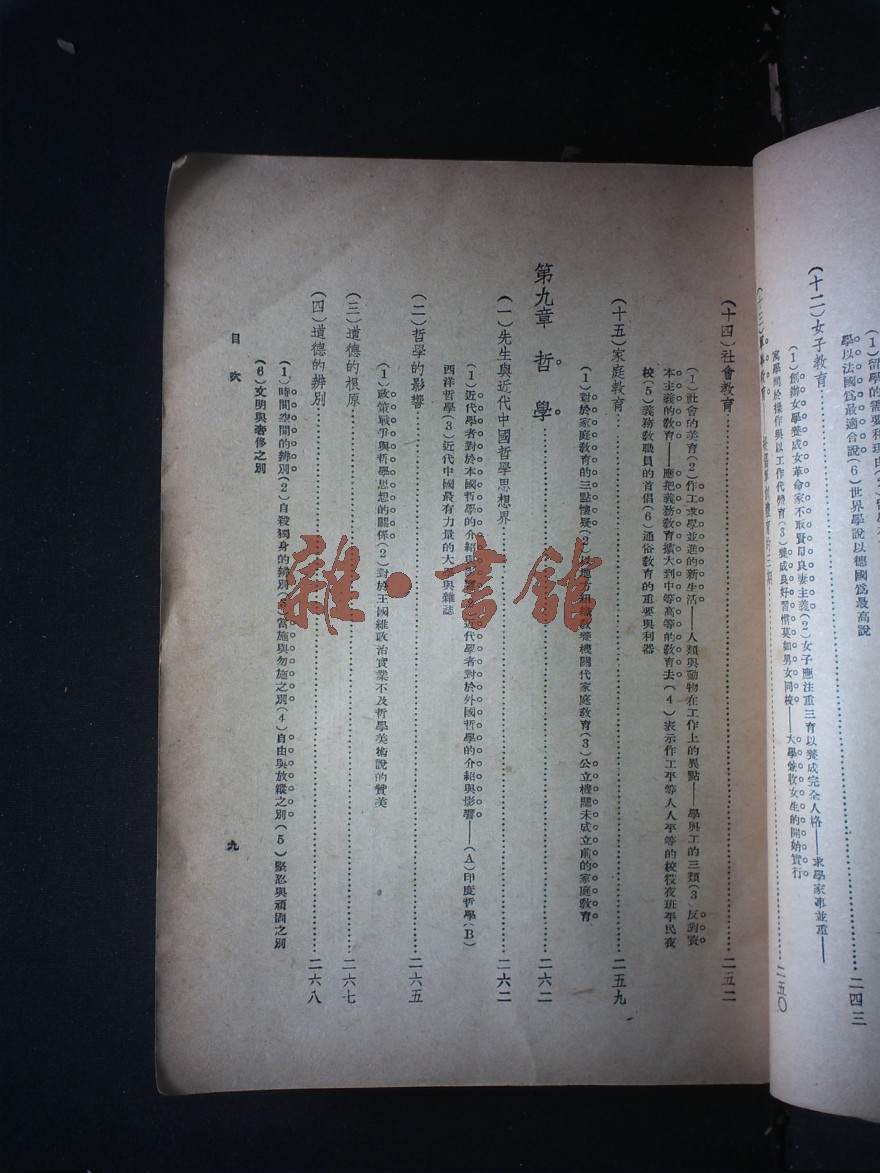 (1)留學的需要和理由
學以法國爲最適合說(6)世界學說以德國爲最高說
二四三
(十二)女子教育
(1)創辦女學養成女革命家不取賢母良妻主義(2)女子應注重三育以養成完全人格——求學家事並重——
寓學問於操作與以工作代體育(3)養成良好習慣莫如男女同校——大學兼收女生的開始實行
二五〇
(十四)社會教育 二五二
(1)社會的美育(2)作工求學並進的新生活——人類與動物在工作上的異點——學與工的三類(3)反對資
本主義的教育——應把義務教育擴大到中等高等的教育去(4)表示作工平等人人平等的校役夜班平民夜
校(5)義務教職員的首倡(6)通俗教育的重要與利器
(十五)家庭教育 二五九
(1)對於家庭教育的三點懷疑(2)以地方組織教養機關代家庭教育(3)公立機關未成立前的家庭教育
第九章 哲學 二六二
(一)先生與近代中國哲學思想界 二六二
(1)近代學者對於本國哲學的介紹與 (2)近代學者對於外國哲學的介紹與影響——(A)印度哲學(B)
西洋哲學(3)近代中國最有力量的大 與雜誌
(二)哲學的影響 二六五
(1)政策戰爭與哲學思想的關係(2)對於王國維政治實業不及哲學美術說的贊美
(三)道德的根原 二六七
(四)道德的辨別 二六八
(1)時間空間的辨別(2)自殺獨身的辨別(3)當施與勿施之別(4)自由與放縱之別(5)堅忍與頑固之別
(6)文明與奢侈之別
目次
九
雜·書館